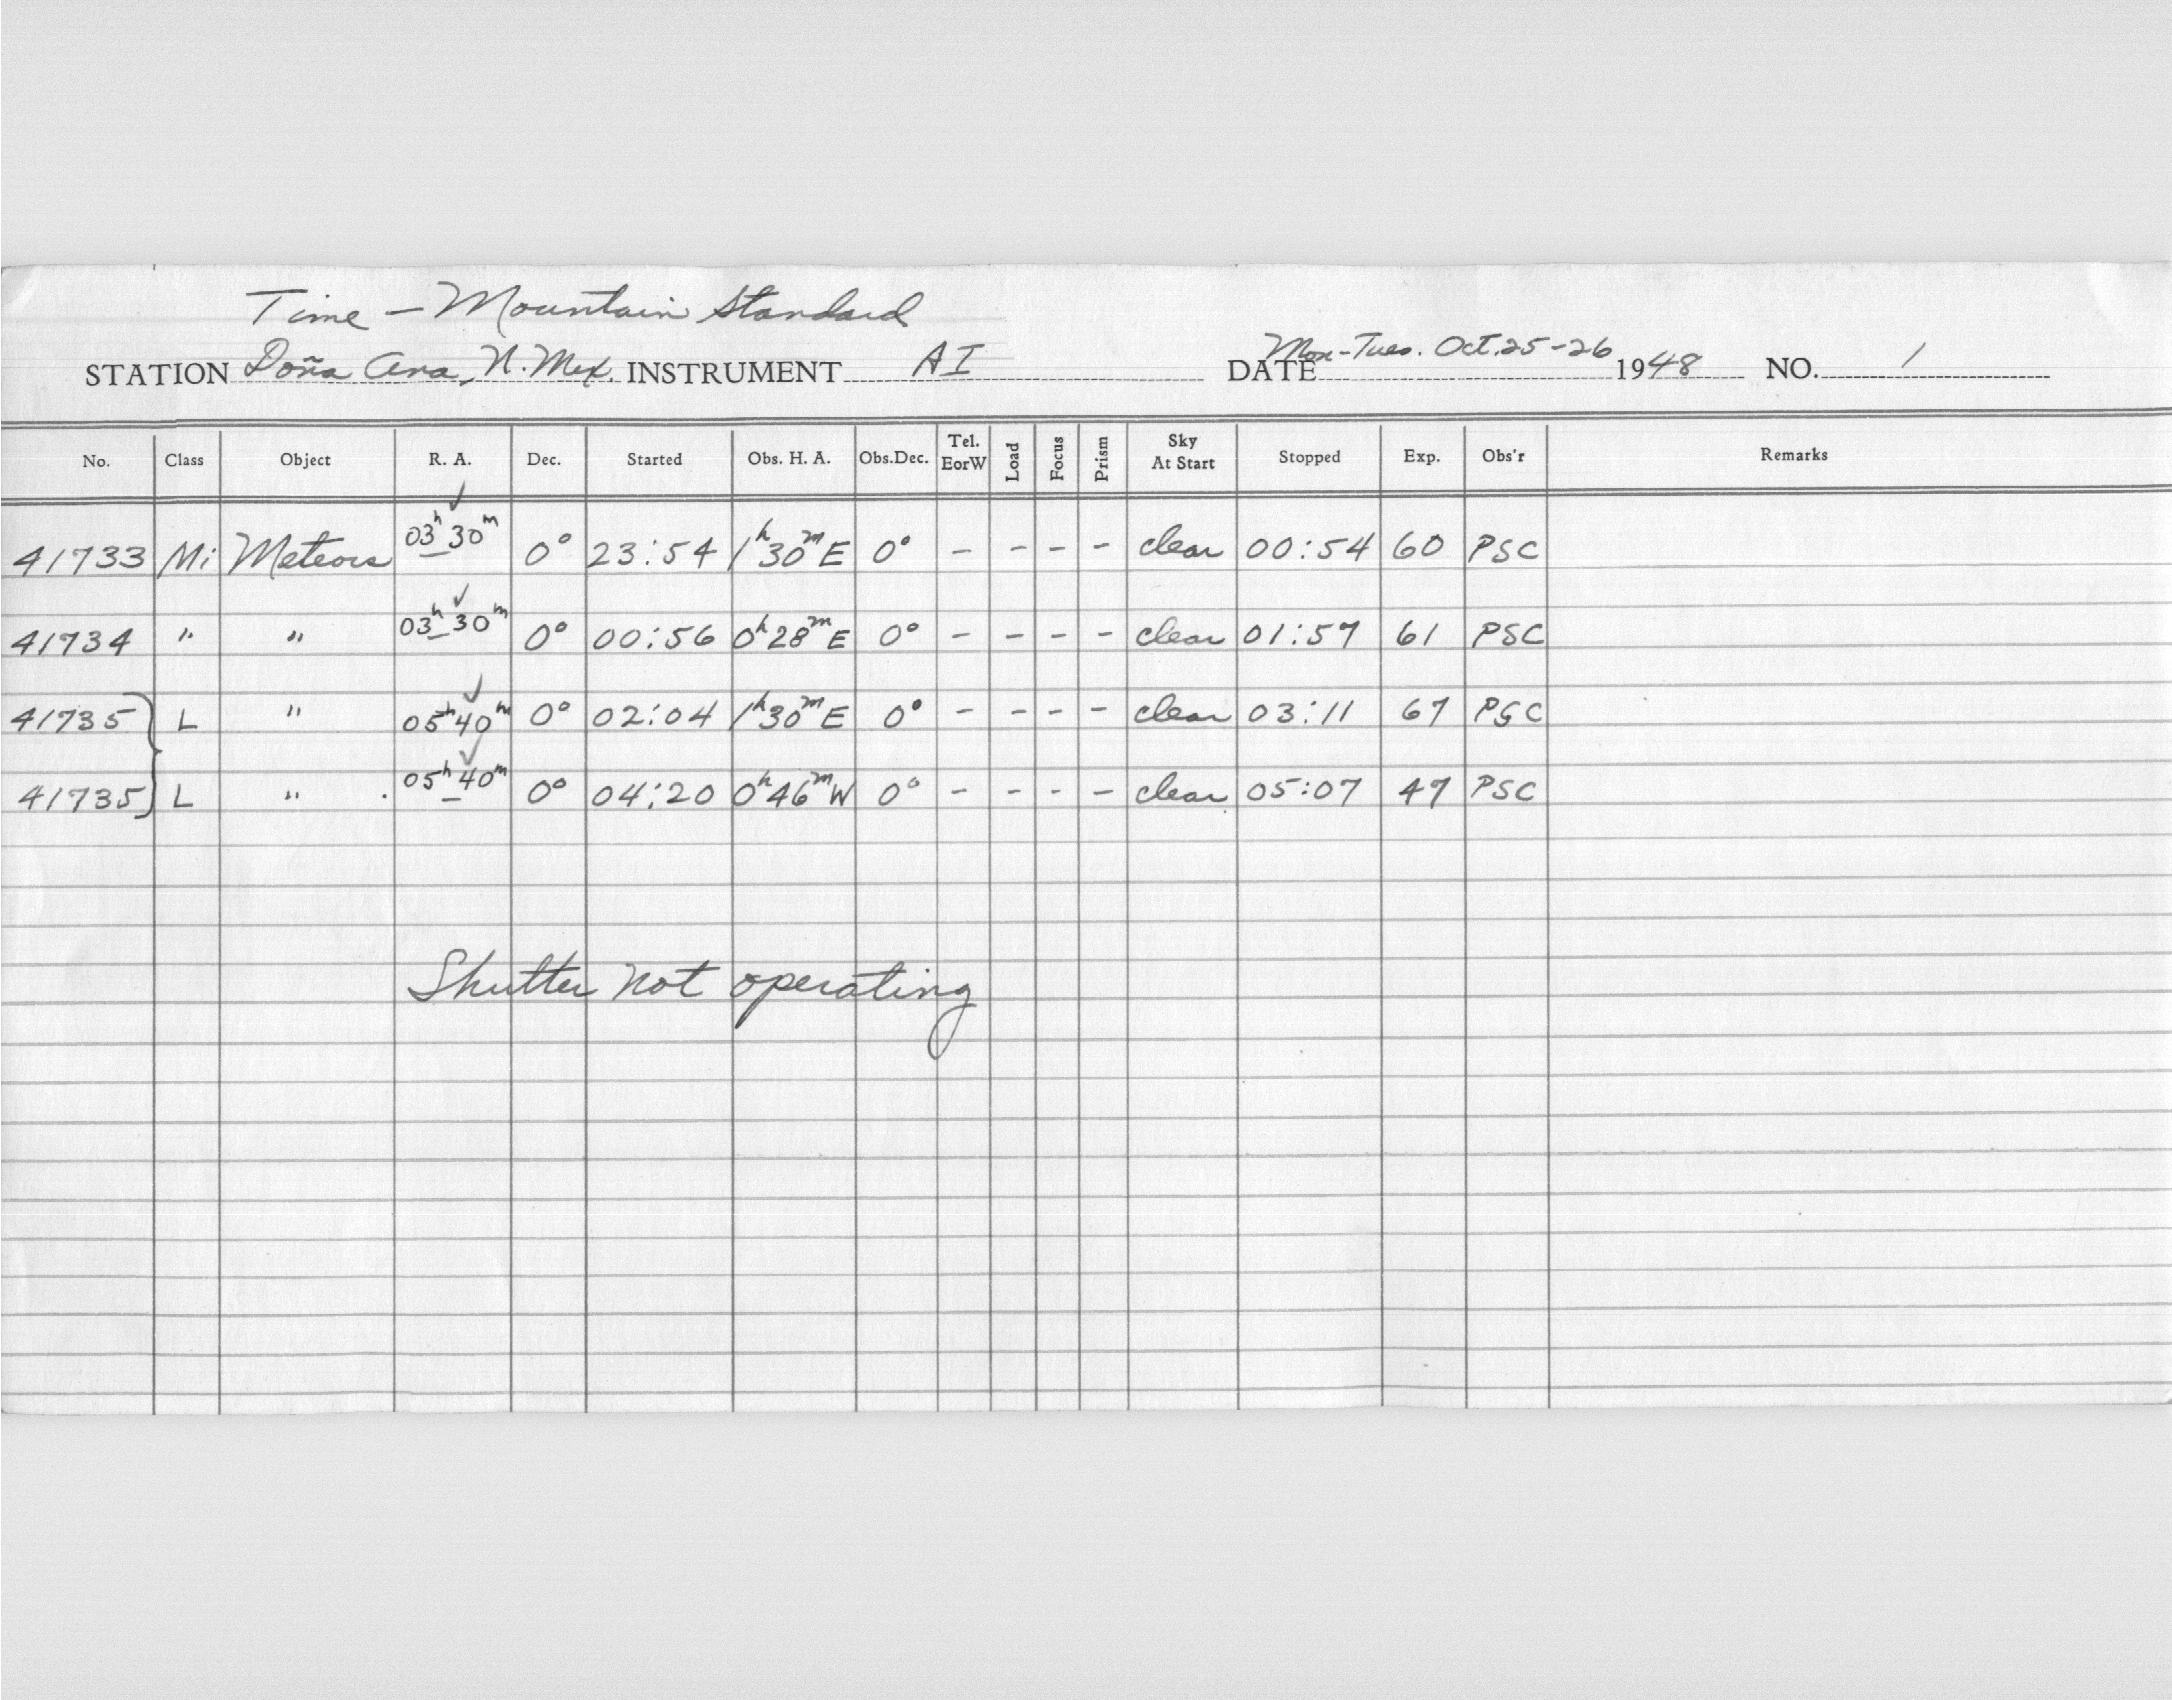 Time – Mountain Standard
STATION Doña Ana, N. Mex. INSTRUMENT AI DATE Mon-Tues. Oct. 25-26 1948 NO. 1
No. Class Object R. A. Dec. Started Obs. H. A. Obs.Dec. Tel. EorW Load Focus Prism Sky At Start Stopped Exp. Obs'r Remarks
41733 Mi Meteors 03h 30m ✓ 0° 23:54 1h 30m E 0° – – – – clear 00:54 60 PSC
41734 " " 03h 30m ✓ 0° 00:56 0h 28m E 0° – – – – clear 01:57 61 PSC
41735 } L " 05h 40m ✓ 0° 02:04 1h 30m E 0° – – – – clear 03:11 67 PSC
41735 } L " 05h 40m ✓ 0° 04:20 0h 46m W 0° – – – – clear 05:07 47 PSC
Shutter not operating